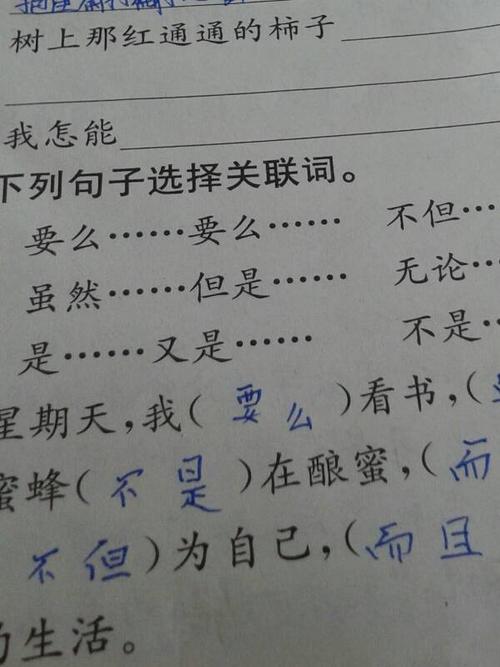 树上那红通通的柿子
我怎能
下列句子选择关联词。
要么……要么…… 不但…
虽然……但是…… 无论…
是……又是…… 不是…
星期天，我（要么）看书，（
蜜蜂（不是）在酿蜜，（而
不但）为自己，（而且
的生活。